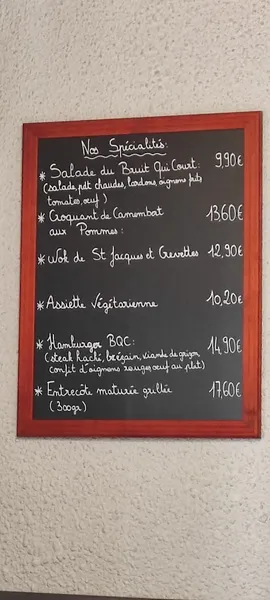 Nos Spécialités:
* Salade du Bruit Qui Court: 9,90€
(salade, pdt chaudes, lardons, oignons frits
tomates, oeuf)
* Croquant de Camembert 13,60€
aux Pommes:
* Wok de St Jacques et Crevettes 12,90€
* Assiette Végétarienne 10,20€
* Hamburger BQC: 14,90€
(steak haché, brézain, viande de grison,
confit d'oignons rouges, oeuf au plat)
* Entrecôte maturée grillée 17,60€
(300gr)